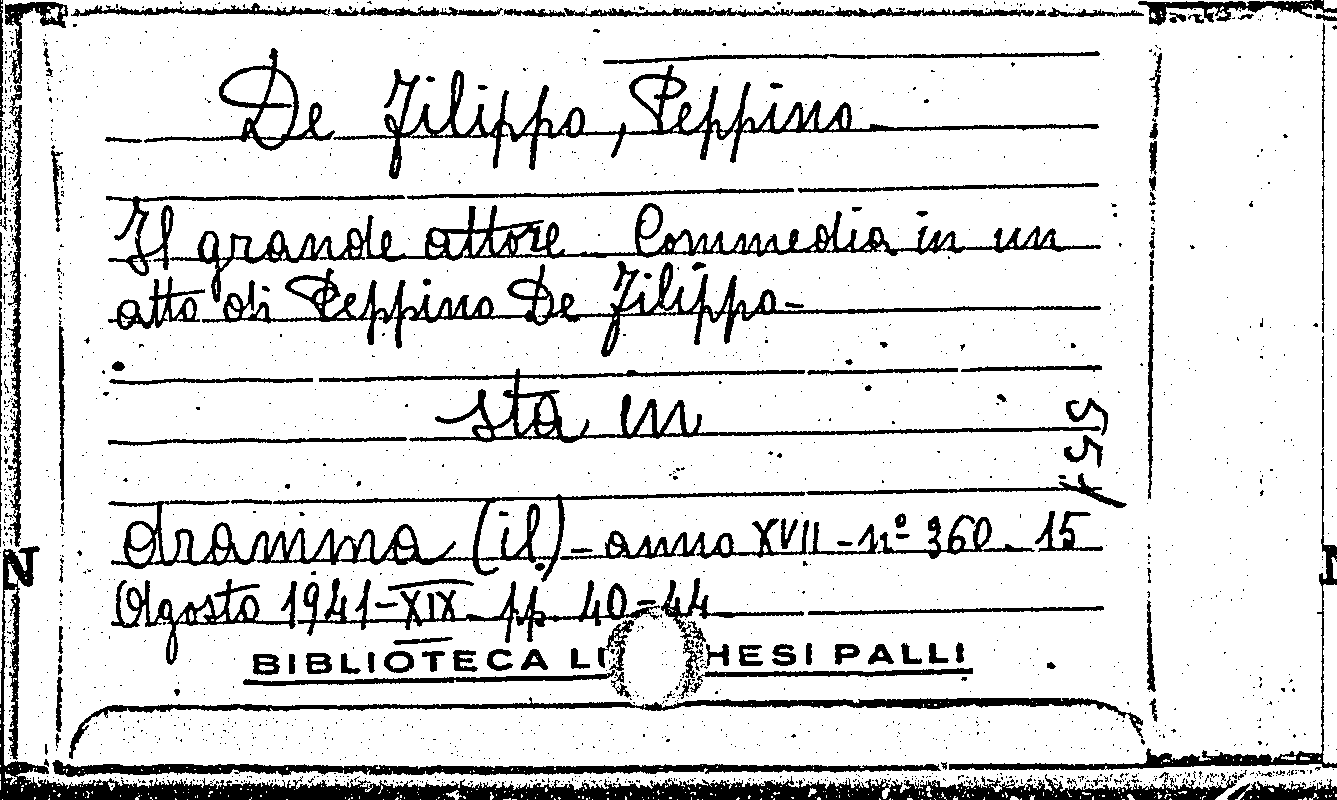 De Filippo, Peppino
Il grande attore Commedia in un
atto di Peppino De Filippo-
sta in
dramma (il) - anno XVII - nº 360 - 15
Agosto 1941-XIX pp. 40-44
BIBLIOTECA LU HESI PALLI
N